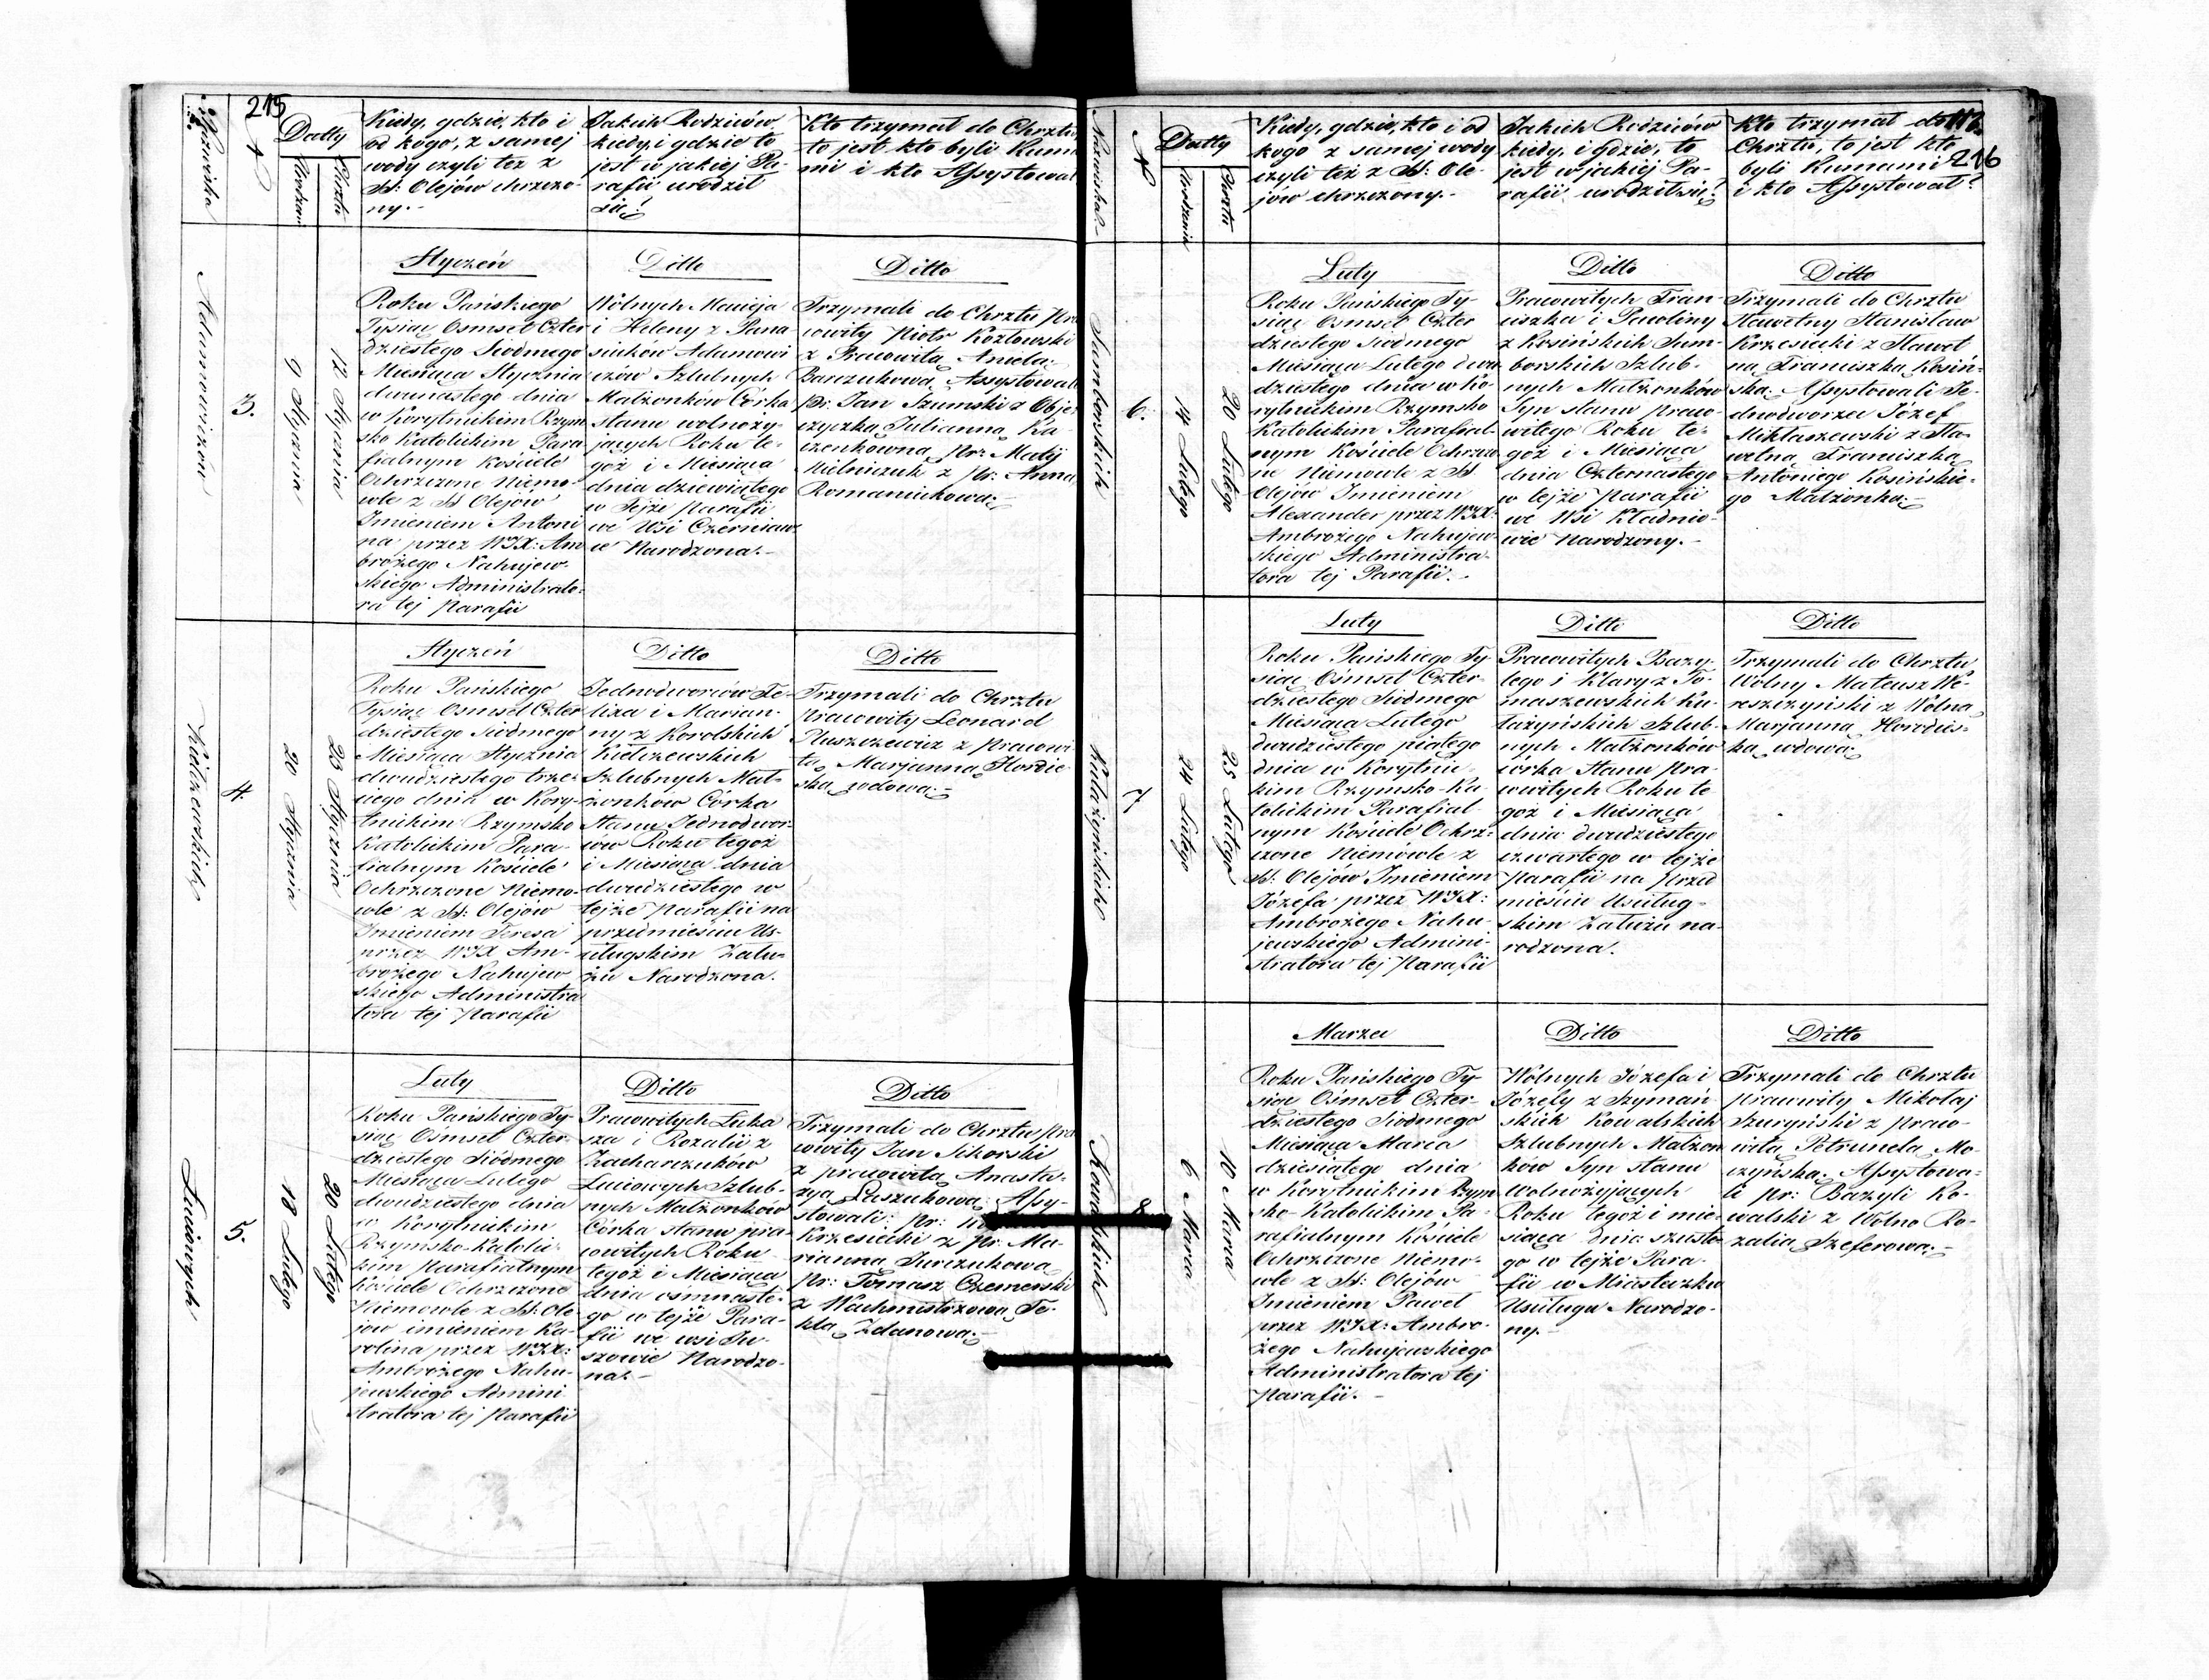 215
Nazwiska
N
Datty
Urodzenia
Chrztu
Kiedy, gdzie, kto i
od kogo, z samej
wody czyli też z
SS: Olejów chrzczo-
ny.-
Jakich Rodziców
kiedy, i gdzie to
jest w jakiej Pa-
rafii urodził
się?
Kto trzymał do Chrztu
to jest kto byli Kum
mi i kto Assystował
Adamowiczów
3.
9 Stycznia
12 Stycznia
Styczeń
Roku Pańskiego
Tysiąc Osmset Czter
dziestego Siodmego
Miesiąca Stycznia
dwunastego dnia
w Korytnickim Rzym
sko Katolickim Para
fialnym Kościele
Ochrzczone Niemo-
wle z SS Olejów
Imieniem Antoni
na przez WJX: Am
brożego Nahujew-
skiego Administrato-
ra tej Parafii
Ditto
Wolnych Macieja
i Heleny z Pana
siuków Adamowi
czów Szlubnych
Małżonków Córka
stanu wolnoży-
jących Roku te-
goż i Miesiąca
dnia dziewiątego
w Tejże Parafii
we Wsi Czerniaw
ce Narodzona.-
Ditto
Trzymali do Chrztu Pra
cowity Piotr Kozłowski
z Pracowitą Anielą
Barczukową, Assystowali
Pr. Jan Szumski z Obje
zczyczką Julianną Ka-
zenkówną Pr: Matij
Mielniczuk z Pr: Anną
Romaniukową.-
Kiełczewskich
4.
20 Stycznia
23 Stycznia
Styczeń
Roku Pańskiego
Tysiąc Osmset Czter
dziestego Siodmego
Miesiąca Stycznia
dwudziestego trze-
ciego dnia w Kory-
tnickim Rzymsko
Katolickim Para-
fialnym Kościele
Ochrzczone Niemo-
wle z SS: Olejów
Imieniem Teresa
przez WJX Am-
brożego Nahujew
skiego Administra
tora tej Parafii
Ditto
Jednodworców Fe-
lixa i Marian-
ny z Korolskich
Kiełczewskich
Szlubnych Mał-
żonków Córka
Stanu Jednodwor-
ców Roku tegoż
i Miesiąca dnia
dwudziestego w
tejże Parafii na
przedmieściu Us-
cilugskim Zału-
żu Narodzona.
Ditto
Trzymali do Chrztu
Pracowity Leonard
Pluszczewicz z Pracowi
tą Marjanną Hordie
ską wdową.-
Luciowych
5.
18 Lutego
20 Lutego
Luty
Roku Pańskiego Ty-
siąc Osmset Czter-
dziestego Siódmego
Miesiąca Lutego
dwudziestego dnia
w Korytnickim
Rzymsko-Katolic-
kim Parafialnym
Kościele Ochrzczone
Niemowle z SS: Ole
jow imieniem Ka-
rolina przez WJX:
Ambrożego Nahu-
jewskiego Admini
stratora tej Parafii
Ditto
Pracowitych Łuka
sza i Rozalii z
Zacharczuków
Luciowych Szlub-
nych Małżonków
Córka stanu pra
cowitych Roku
tegoż i Miesiąca
dnia osmnaste-
go w tejże Para-
fii we wsi Su-
szowie Narodzo-
na.-
Ditto
Trzymali do Chrztu Pra
cowity Jan Sikorski
z pracowitą Anasta-
zyą Laszukową, Assy-
stowali: Pr:
Krzesiecki z Pr: Ma-
rianną Jurczukową
Pr: Tomasz Czemerski
z Wachmistrzową Te-
klą Zdanową.-
216
Nazwiska
N
Datty
Urodzenia
Chrztu
Kiedy, gdzie, kto i od
kogo z samej wody
czyli też z SS: Ole-
jów chrzczony.-
Jakich Rodziców
kiedy, i gdzie, to
jest w jakiej Pa-
rafii urodził się?
Kto trzymał do
Chrztu, to jest kto
byli Kumami
i kto Assystował?
Samborskich
6.
14 Lutego
20 Lutego
Luty
Roku Pańskiego Ty-
siąc Osmset Czter
dziestego Siodmego
Miesiąca Lutego dwu
dziestego dnia w Ko-
rytnickim Rzymsko
Katolickim Parafial-
nym Kościele Ochrzczo
ne Niemowle z SS
Olejów Imieniem
Alexander przez WJX:
Ambrożego Nahujew-
skiego Administra-
tora tej Parafii.-
Ditto
Pracowitych Fran-
ciszka i Pawliny
z Kosińskich Sam-
borskich Szlub-
nych Małżonków
Syn stanu praco-
witego Roku te-
goż i Miesiąca
dnia Czternastego
w tejże Parafii
we Wsi Kładnio-
wie Narodzony.-
Ditto
Trzymali do Chrztu
Sławetny Stanisław
Krzesiecki z Sławet
ną Franciszką Kosiń-
ską, Assystowali Je-
dnodworzec Józef
Mikłaszewski z Sła-
wetną Franciszką
Antoniego Kosińskie-
go Małżonką.-
Kułażyńskich
7
24 Lutego
25 Lutego
Luty
Roku Pańskiego Ty-
siąc Osmset Czter-
dziestego Siodmego
Miesiąca Lutego
dwudziestego piątego
dnia w Korytnic-
kim Rzymsko-Ka-
tolickim Parafial-
nym Kościele Ochrz-
czone Niemówle z
SS: Olejów Imieniem
Józefa przez WJX:
Ambrożego Nahu-
jewskiego Admini-
stratora tej Parafii
Ditto
Pracowitych Bazy-
lego i Klary z To-
maszewskich Ku-
łażyńskich Szlub-
nych Małżonków
córka Stanu Pra-
cowitych Roku te
goż i Miesiąca
dnia dwudziestego
czwartego w tejże
Parafii na Przed
mieściu Uściług-
skim Załużu na-
rodzona.
Ditto
Trzymali do Chrztu
Wolny Mateusz We-
reszczyński z Wolną
Marjanną Hordies-
ką wdową.-
Kowalskich
8.
6 Marca
10 Marca
Marzec
Roku Pańskiego Ty-
siąc Osmset Czter-
dziestego Siodmego
Miesiąca Marca
dziesiątego dnia
w Korytnickim Rzym
sko-Katolickim Pa-
rafialnym Kościele
Ochrzczone Niemo-
wle z SS: Olejów
Imieniem Paweł
przez WJX: Ambro-
żego Nahujewskiego
Administratora tej
Parafii.-
Ditto
Wolnych Józefa i
Józefy z Szymań-
skich Kowalskich
Szlubnych Małżon
ków Syn stanu
wolnożyjących
Roku tegoż i mie-
siąca dnia szóste-
go w tejże Para-
fii w Miasteczku
Uściługu Narodzo-
ny.-
Ditto
Trzymali do Chrztu
Pracowity Mikołaj
Szuryński z praco-
witą Petrunelą Mo-
czyńską, Assystowa-
li pr: Bazyli Ko-
walski z Wolną Ro-
zalią Szeferową.-